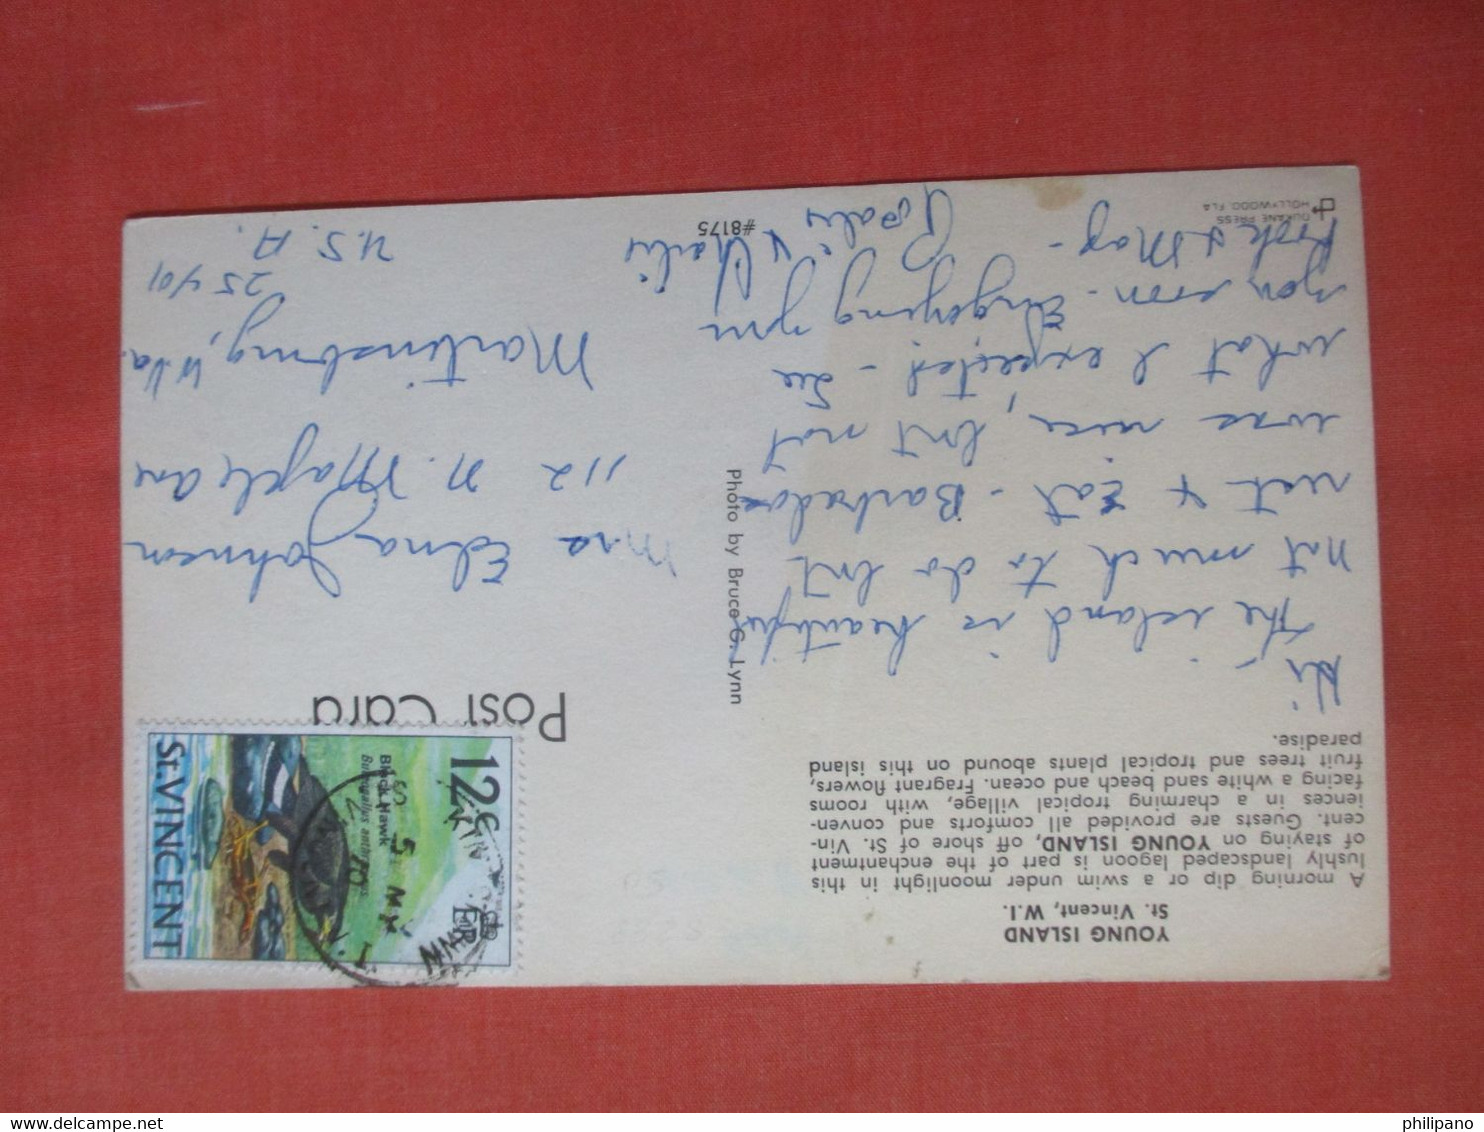 YOUNG ISLAND
St. Vincent, W.I.
A morning dip or a swim under moonlight in this
lushly landscaped lagoon is part of the enchantment
of staying on YOUNG ISLAND, off shore of St. Vin-
cent. Guests are provided all comforts and conven-
iences in a charming tropical village, with rooms
facing a white sand beach and ocean. Fragrant flowers,
fruit trees and tropical plants abound on this island
paradise.
Hi -
The island is beautiful
not much to do but
rest & Eat - Barbados
was nice, but not
what I expected - See
you soon - Enjoying you
& May -
& Charlie
DUKANE PRESS
HOLLYWOOD, FLA
#8175
Photo by Bruce G. Lynn
Post Card
12c
ER
Black Hawk
St. VINCENT
5 MY
70
Mrs Edna Johnson
112 N. Maple Ave
Martinsburg, W. Va.
25401
U.S.A.
philipano